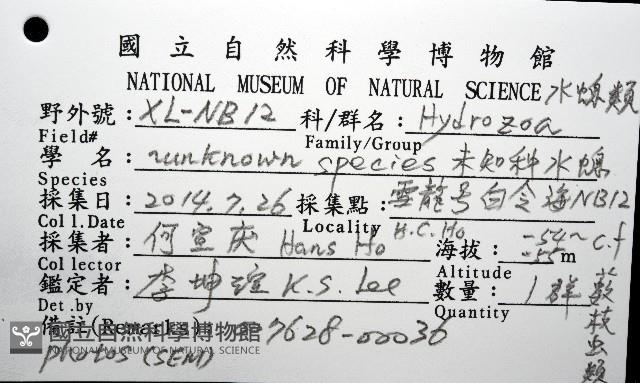 國立自然科學博物館
NATIONAL MUSEUM OF NATURAL SCIENCE 水螅類
野外號: XL-NB12 科/群名: Hydrozoa
Field# Family/Group
學 名: unknown species 未知科水螅
Species
採集日: 2014.7.26 採集點: 雪龍号白令海NB12
Coll.Date Locality H.C.Ho
採集者: 何宣庆 Hans Ho 海拔: -54~ -55 m c.f
Collector Altitude
鑑定者: 李坤瑄 K.S. Lee 數量: 1群
Det.by Quantity
備註(Remarks): 7628-00036
photos (SEM)
國立自然科學博物館
NATIONAL MUSEUM OF NATURAL SCIENCE
枝虫類